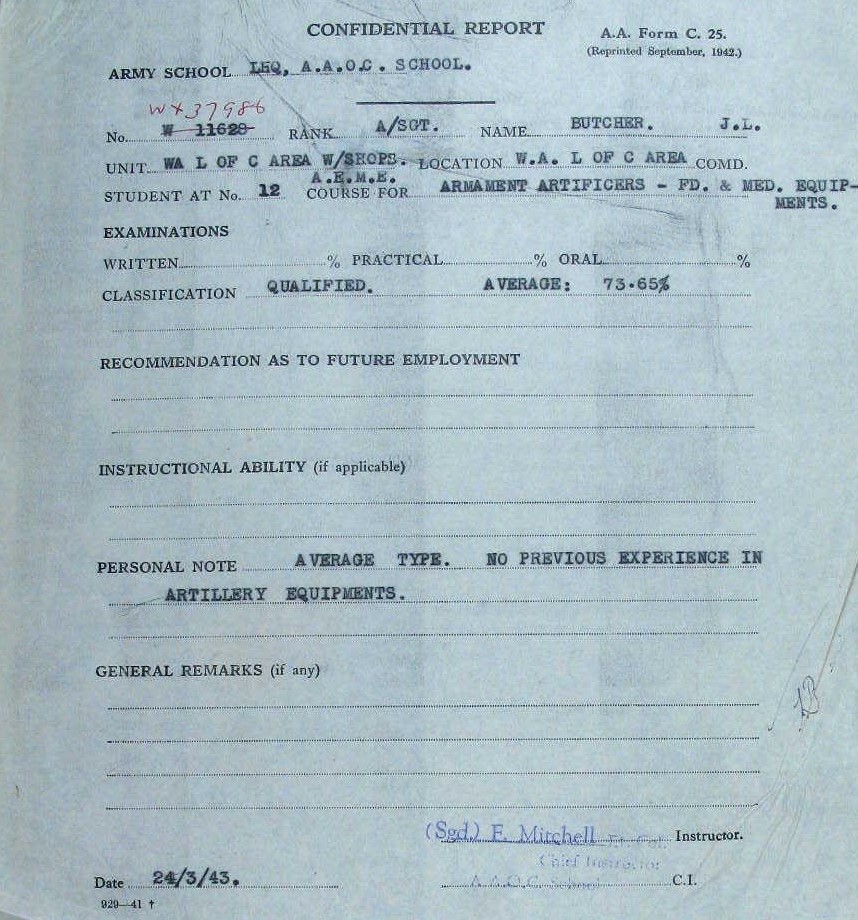 CONFIDENTIAL REPORT
A.A. Form C. 25.
(Reprinted September, 1942.)
ARMY SCHOOL LHQ, A.A.O.C. SCHOOL.
WX37986
No. W 11628 RANK A/SGT. NAME BUTCHER. J.L.
UNIT WA L OF C AREA W/SHOPS. LOCATION W.A. L OF C AREA COMD.
A.E.M.E.
STUDENT AT No. 12 COURSE FOR ARMAMENT ARTIFICERS - FD. & MED. EQUIP-
MENTS.
EXAMINATIONS
WRITTEN % PRACTICAL % ORAL %
CLASSIFICATION QUALIFIED. AVERAGE: 73.65%
RECOMMENDATION AS TO FUTURE EMPLOYMENT
INSTRUCTIONAL ABILITY (if applicable)
PERSONAL NOTE AVERAGE TYPE. NO PREVIOUS EXPERIENCE IN
ARTILLERY EQUIPMENTS.
GENERAL REMARKS (if any)
(Sgd.) E. Mitchell Instructor.
Chief Instructor
Date 24/3/43. A.A.O.C. School C.I.
929—41 †